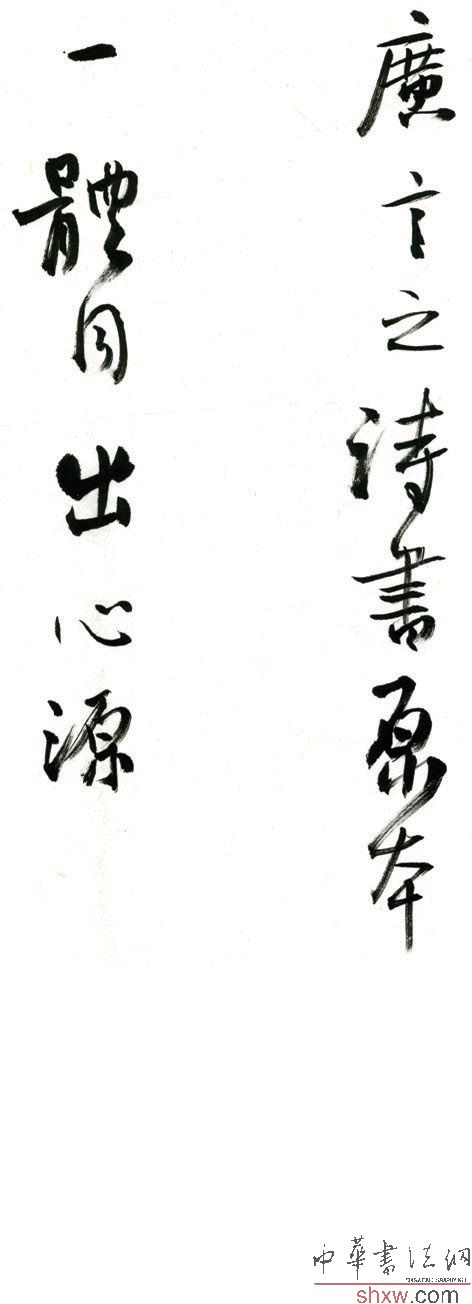 廣言之詩書原本
一體同出心源
中華書法網
shxw.com